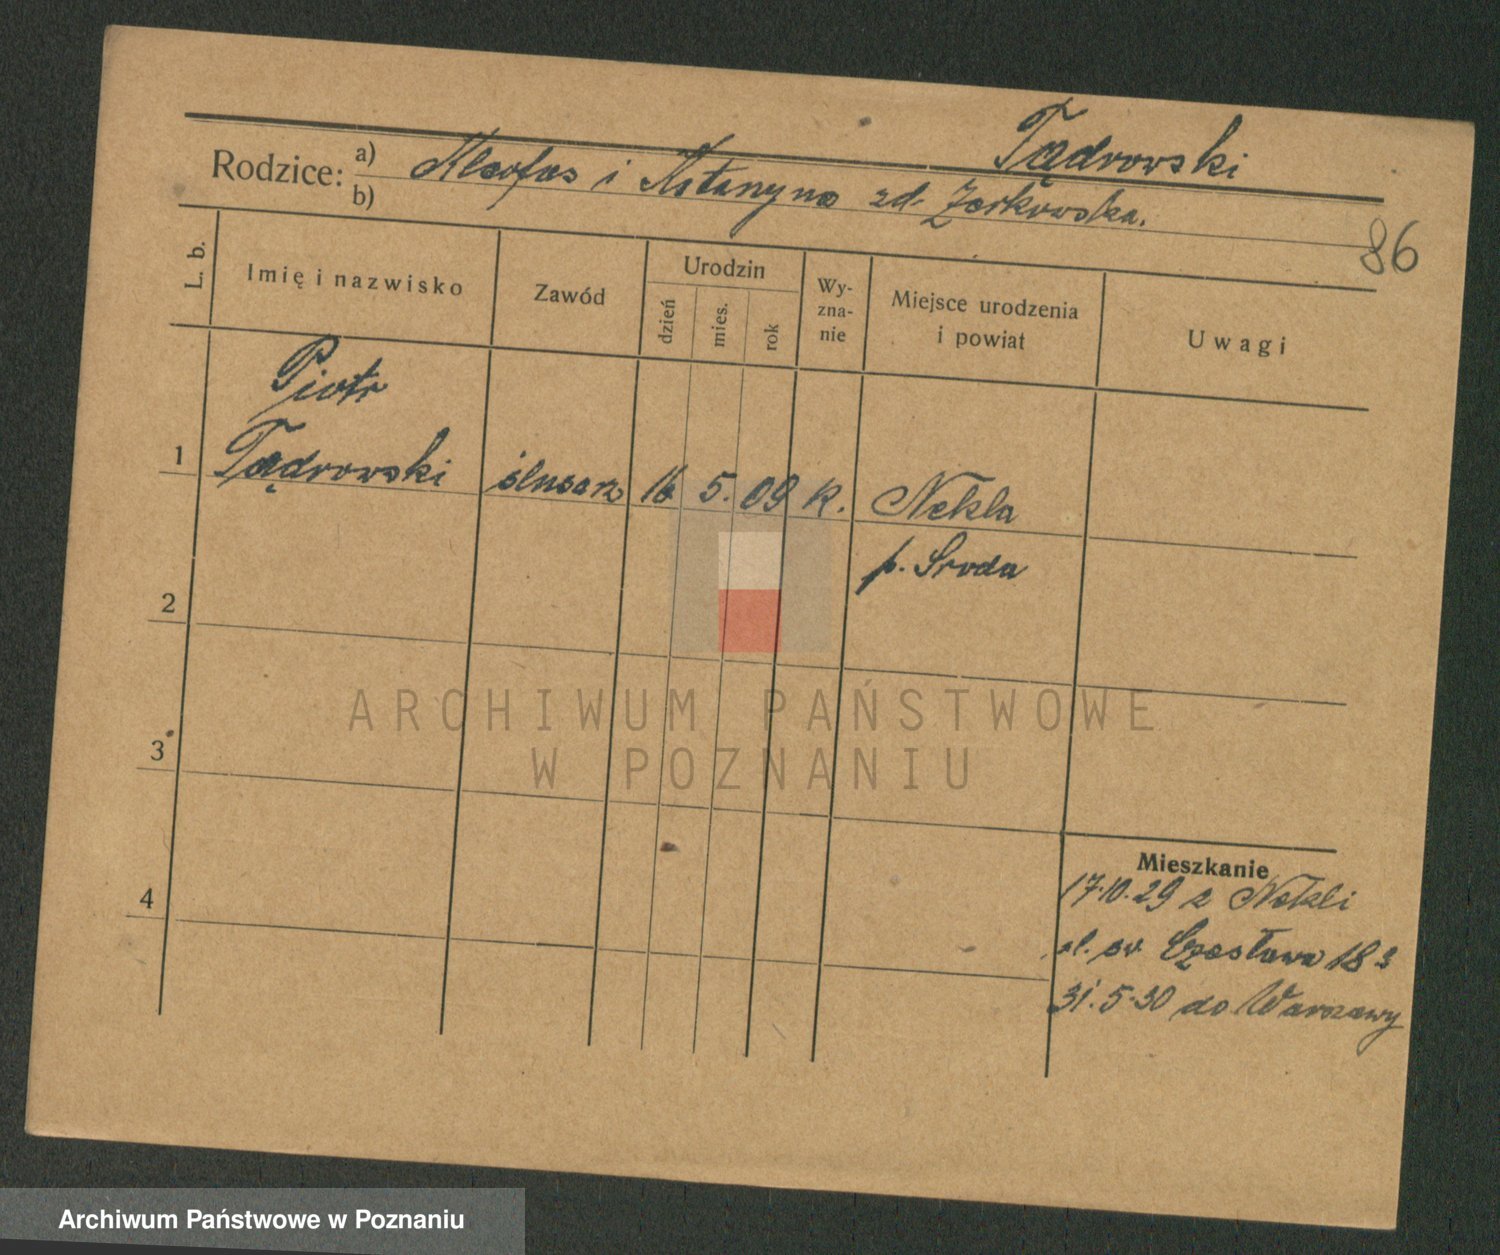 Tądrowski
Rodzice: a) Kleofas i Katarzyna zd. Żerkowska.
b)
86
L. b.
Imię i nazwisko
Zawód
Urodzin
dzień
mies.
rok
Wy-
zna-
nie
Miejsce urodzenia
i powiat
Uwagi
Piotr
1 Tądrowski ślusarz 16 5. 09 k. Nekla
p. Środa
2
ARCHIWUM PAŃSTWOWE
W POZNANIU
3
4
Mieszkanie
17.10.29 z Nekli
ul. św. Czesława 18
31.5.30 do Warszawy
Archiwum Państwowe w Poznaniu